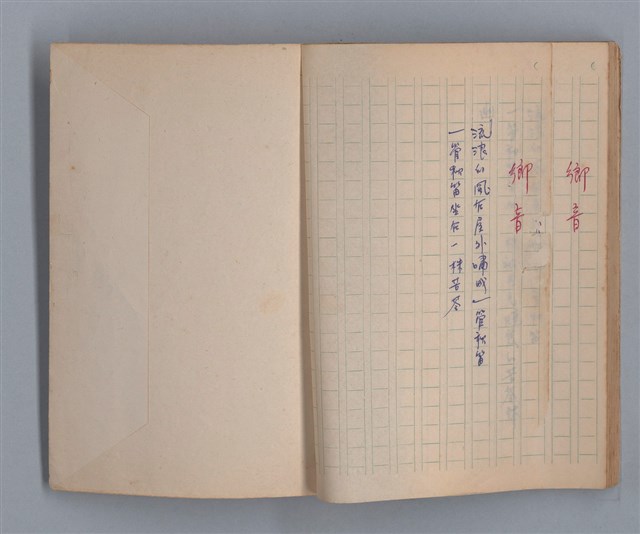 鄉音
鄉音
流浪的風在屋外嘯成一管秋笛
一管秋笛坐在一棵苦苓